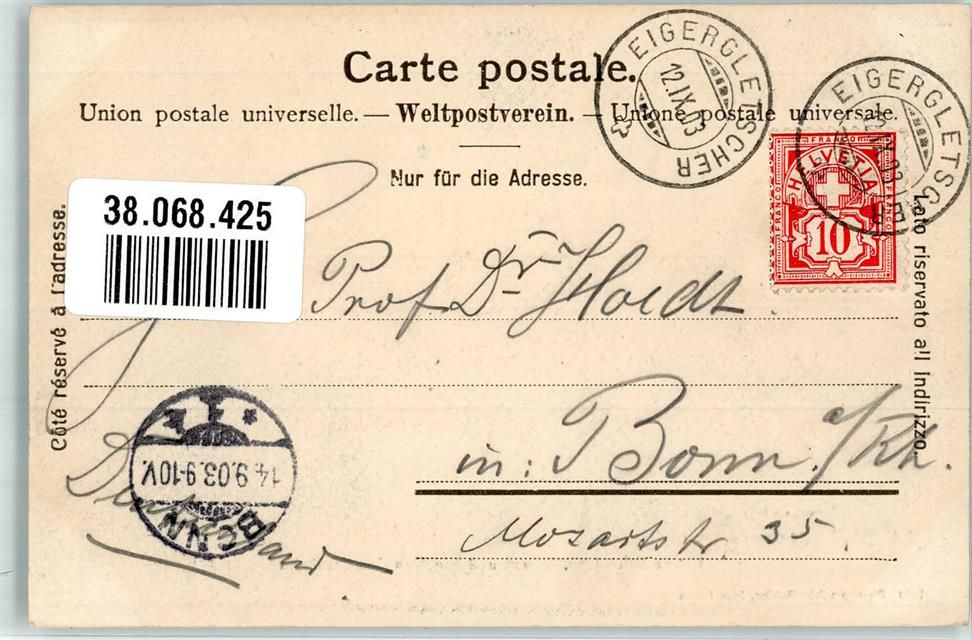 Carte postale.
Union postale universelle. — Weltpostverein. — Unione postale universale.
Nur für die Adresse.
EIGERGLETSCHER
12.IX.03
EIGERGLETSCHER
FRANCO
HELVETIA
FRANCO
FRANCO
10
38.068.425
Côté réservé à l'adresse.
Lato riservato all indirizzo.
Prof Dr
in: Bonn a/Rh.
Mozartstr. 35.
Deutschland
14.9.03.9-10V.
BONN